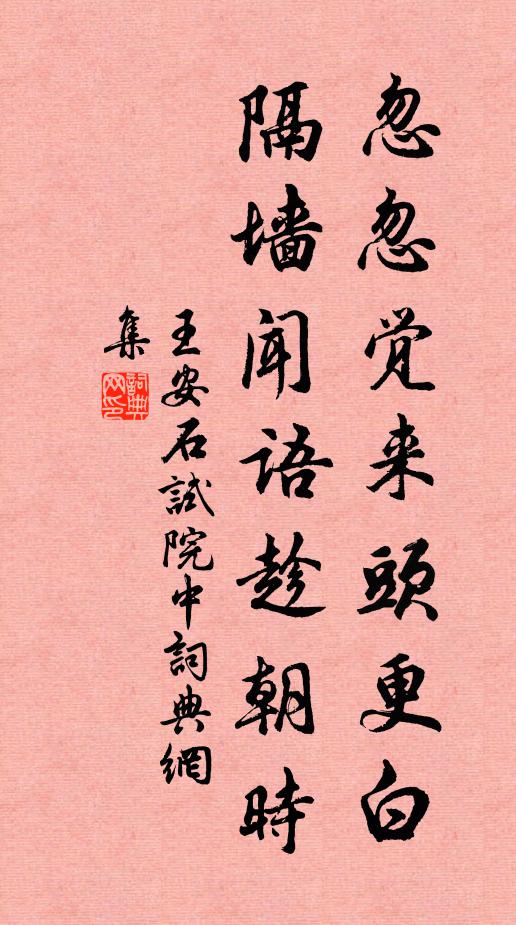 忽忽觉来頭更白
隔墙闻语趁朝時
王安石試院中詞典網
集
詞典网印